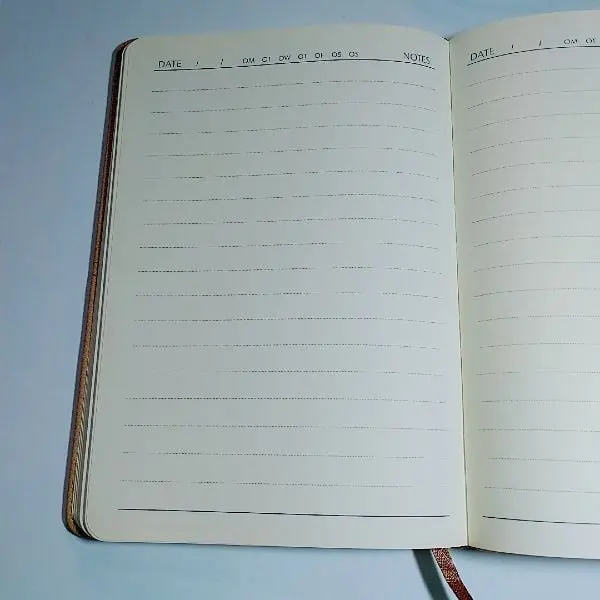 DATE / / OM OT OW OT OF OS OS NOTES
DATE / / OM OS